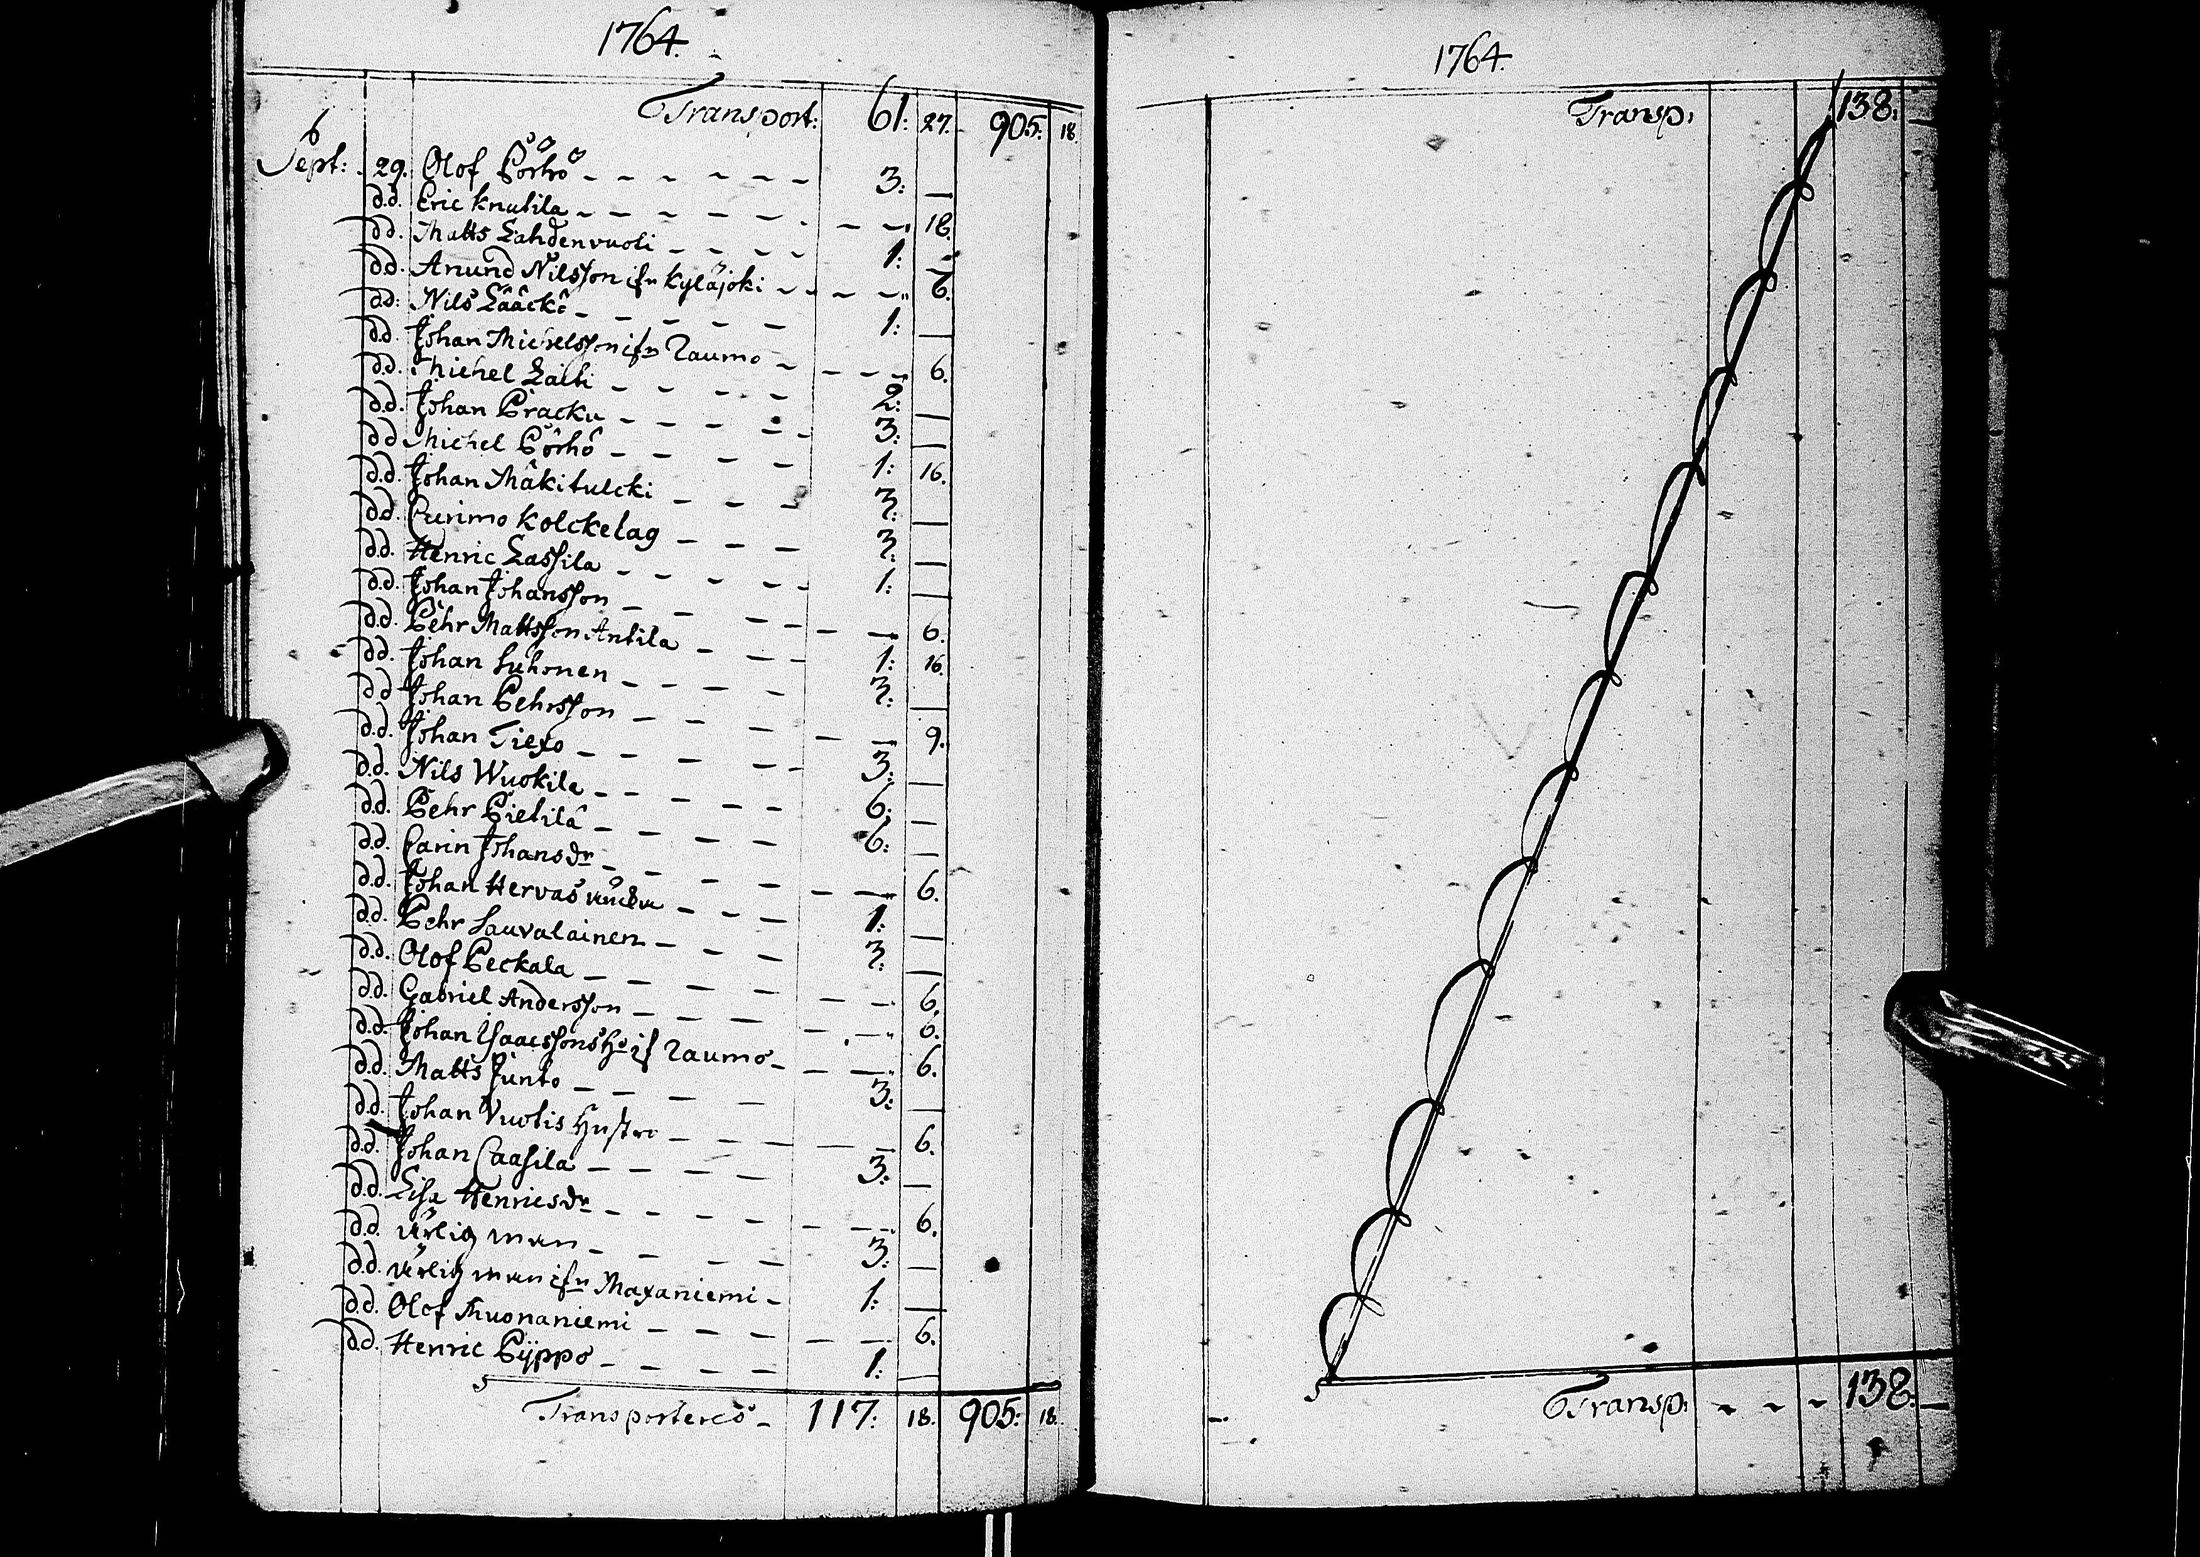 1764.
Transport: 61: 27. 905: 18.
Sept: 29. Olof Pörhö - - - - - - 3: —
d.d. Eric Knutila - - - - - - - - 18.
d.d. Matts Lahdenvuoti - - - - 1: —
d.d. Anund Nilsson ifrn Kyläjoki - - - - 6.
d.d: Nils Lääckö - - - - - 1: —
d.d. Johan Michelsson ifrn Raumo - - - - 6.
d.d. Michel Laiti - - - - 2: —
d.d. Johan Pracku - - - - - - 3: —
d.d. Michel Pörhö - - - - 1: 16.
d.d. Johan Mäkitulcki - - - 3: —
d.d. Purimo Kolckelag - - - 3: —
d.d. Henric Lassila - - - - - 1: —
d.d. Johan Johansson - - - - - - 6.
d.d. Pehr Mattsson Antila - - - 1: 16.
d.d. Johan Luhonen - - - - 3: —
d.d. Johan Pehrsson - - - - - 9.
d.d. Johan Tiexo - - - - - 3: —
d.d. Nils Wuokila - - - - 6: —
d.d. Pehr Pietilä - - - - - 6: —
d.d. Carin Johansdr - - - - - - - 6.
d.d. Johan Hervas - - - 1: —
d.d. Pehr Lauvalainen - - - 3: —
d.d. Olof Peckala - - - - - - 6.
d.d. Gabriel Andersson - - - - - - 6.
d.d. Johan Isaacssons if Raumo - - - 6.
d.d. Matts Junto - - - - 3: —
d.d. Johan Vuotis Hustro - - - - - 6.
d.d. Johan Caasila - - - - 3: —
d.d. Lisa Henricsdr - - - - - - - 6.
d.d. ärlig man - - - - 3: —
d.d. ärlig man ifrn Maxaniemi - 1: —
d.d. Olof Muonaniemi - - - - - 6.
d.d. Henric Pyppö - - - - 1: —
Transporteres - 117: 18. 905: 18.
1764.
Transp. 138: —
Transp. - - - 138. —